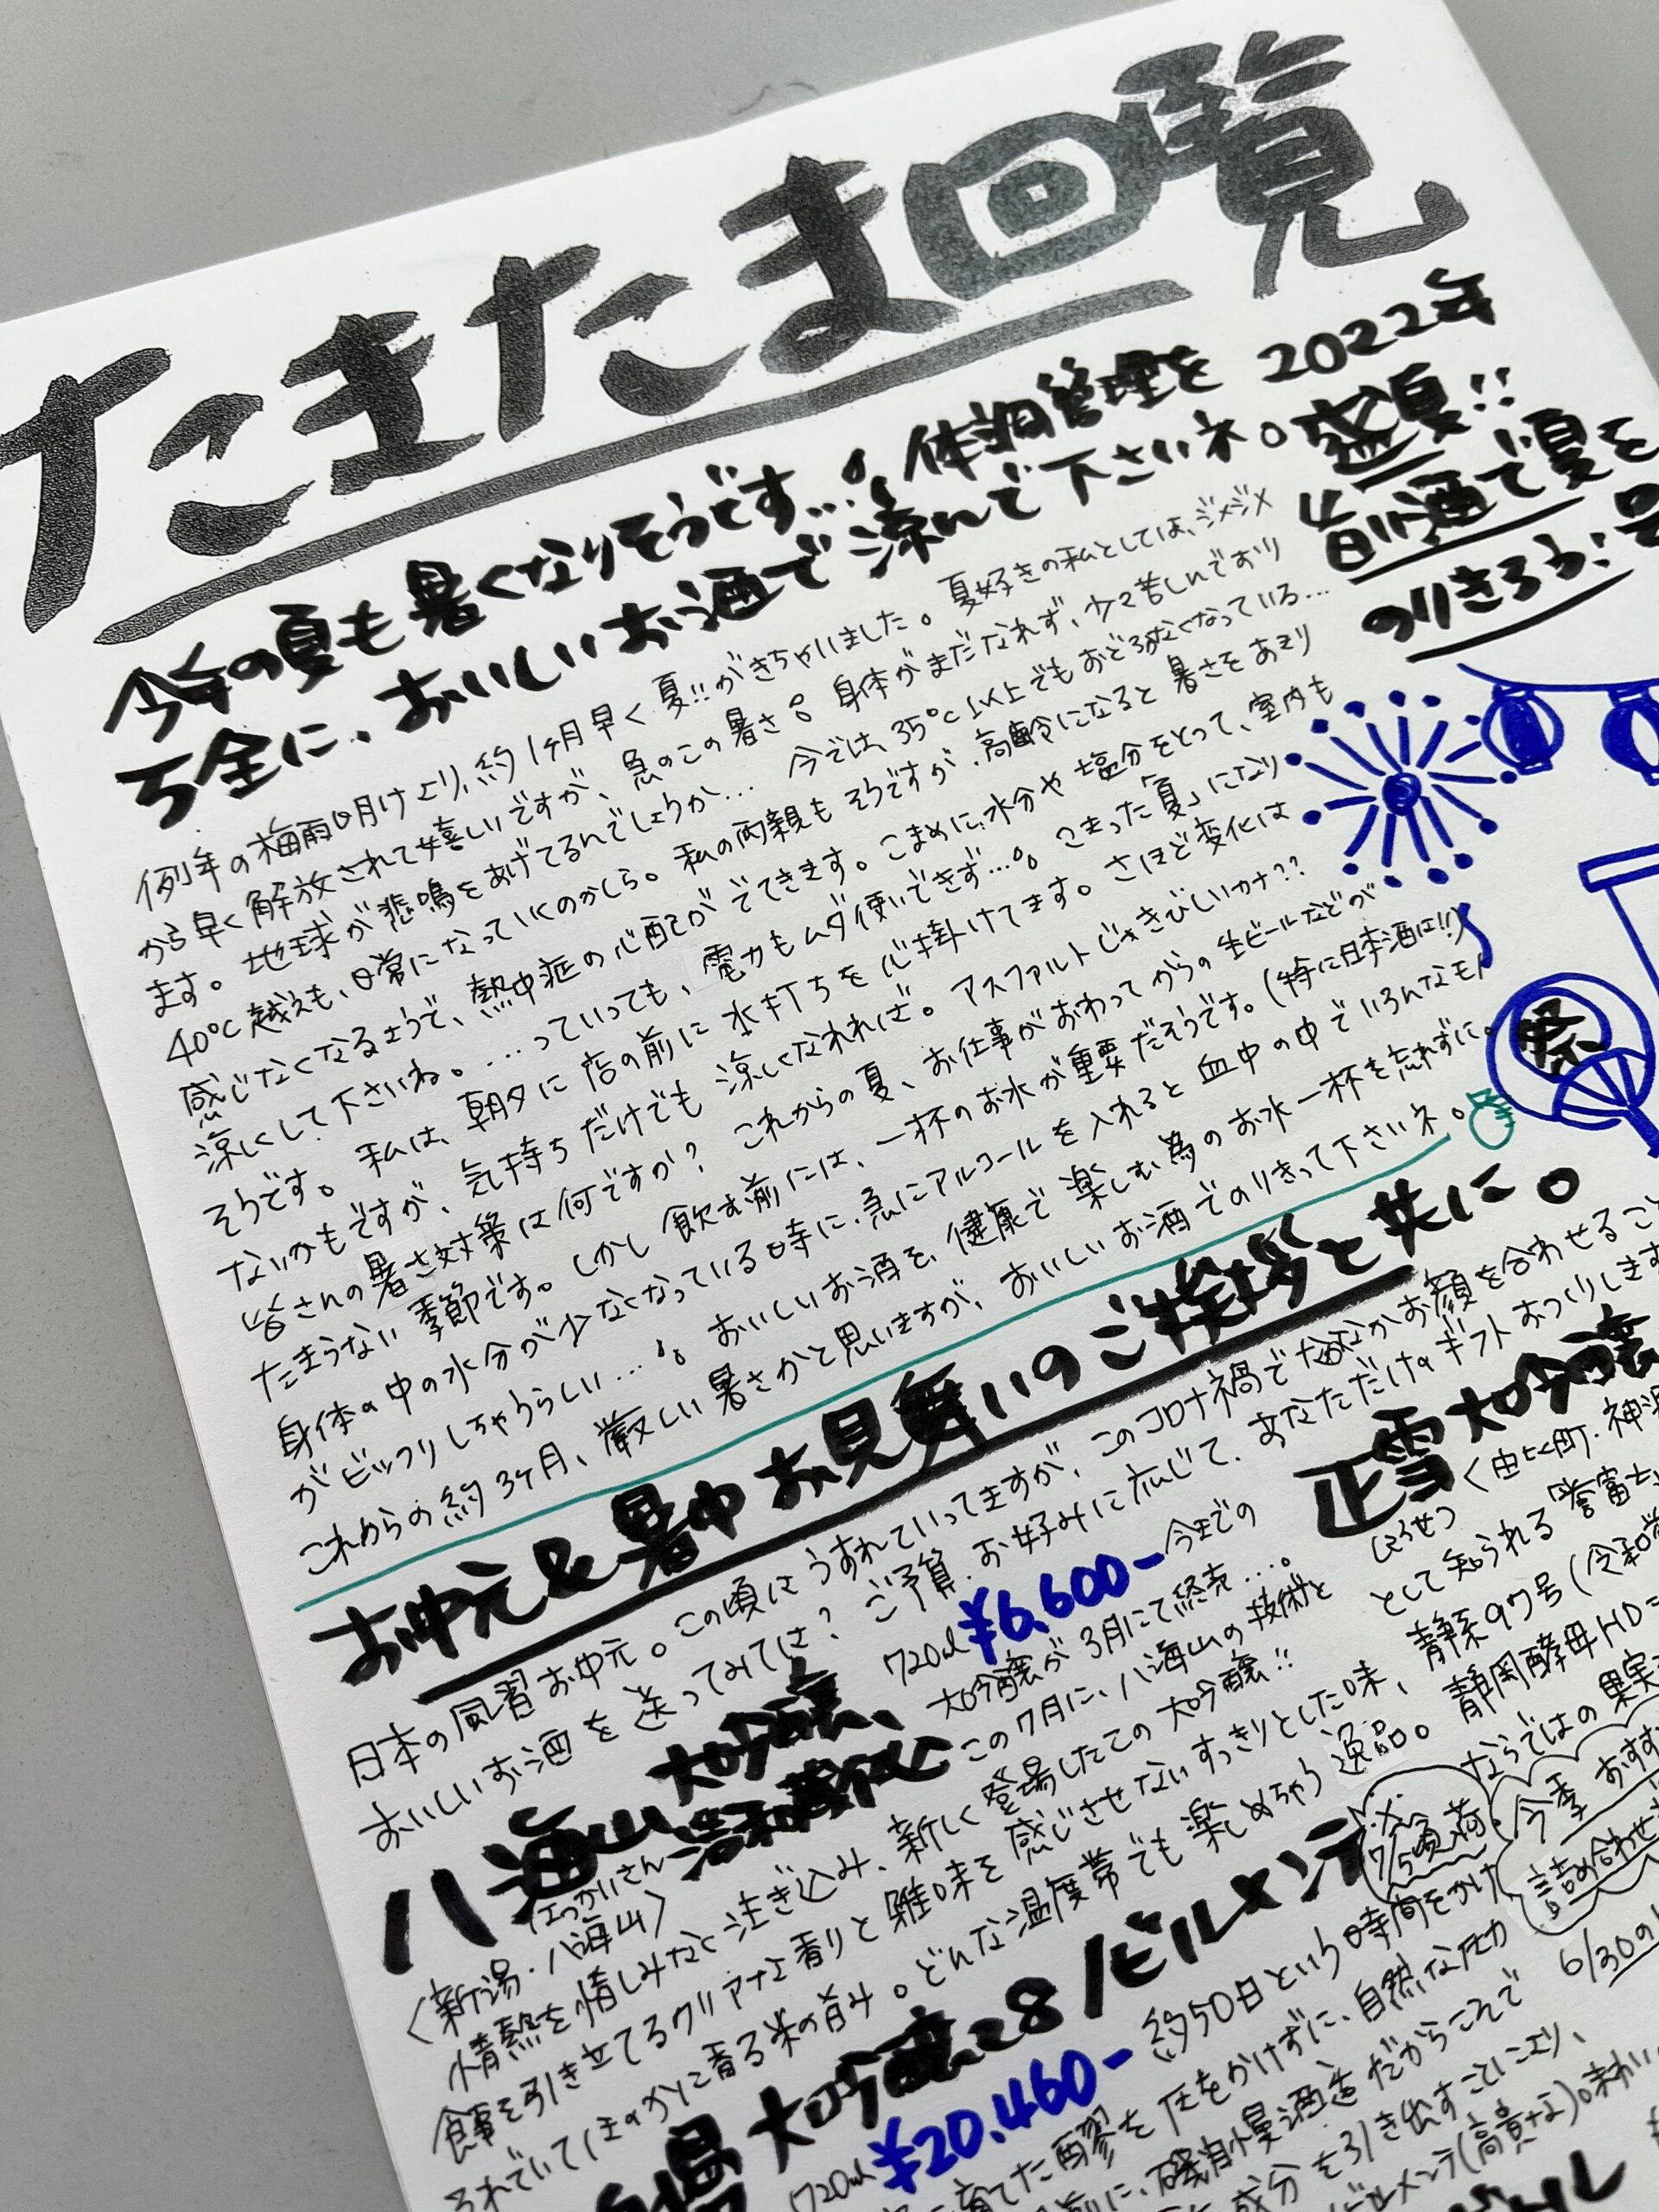 たまたま回覧
今年の夏も暑くなりそうです…。体調管理を
万全に、おいしいお酒で涼んで下さいネ。
2022年
盛夏!!
旨い酒で夏を
のりきろう!号
例年の梅雨明けより、約1ヶ月早く夏!!がきちゃいました。夏好きの私としては、ジメジメ
から早く解放されて嬉しいですが、急のこの暑さ。身体がまだなれず、少々苦しんでおり
ます。地球が悲鳴をあげてるんでしょうか… 今では、35℃以上でもおどろかなくなっている…
40℃越えも、日常になっていくのかしら。私の両親もそうですが、高齢になると暑さをあまり
感じなくなるようで、熱中症の心配がでてきます。こまめに、水分や塩分をとって、室内も
涼しくして下さいね。…っていっても、電力もムダ使いできず…。「こまった夏」になり
そうです。私は、朝夕に店の前に水打ちを心掛けてます。さほど変化は
ないかもですが、気持ちだけでも涼しくなれれば。アスファルトじゃきびしいカナ??
皆さんの暑さ対策は何ですか? これからの夏、お仕事がおわってからの生ビールなどが
たまらない季節です。しかし飲む前には、一杯のお水が重要だそうです。(特に日本酒は!!)
身体の中の水分が少なくなっている時に、急にアルコールを入れると血中の中でいろんなモノ
がビックリしちゃうらしい…。おいしいお酒を、健康で楽しむ為のお水一杯を忘れずに。
これからの約3ヶ月、厳しい暑さかと思いますが、おいしいお酒でのりきって下さいネ。
祭
お中元&暑中お見舞いのご挨拶と共に。
日本の風習お中元。この頃はうすれていってますが、このコロナ禍でなかなかお顔を合わせること
おいしいお酒を送ってみては? ご予算、お好みに応じて、あなただけのギフトおつくりします
八海山 大吟醸
はっかいさん
浩和蔵仕込
720ml ¥6,600-
〈新潟・八海山〉
今までの
大吟醸が3月にて終売…。
この7月に、八海山の技術と
情熱を惜しみなく注ぎ込み、新しく登場したての大吟醸!!
食事を引き立てるクリアな香りと雑味を感じさせないすっきりとした味、
それでいてほのかに香る米の旨み。どんな温度帯でも楽しめちゃう逸品。
正雪 大吟醸
しょうせつ〈由比町・神沢
として知られる「誉富士
静系97号(令和誉
静岡酵母HD-
ならではの果実
大吟醸28/ビルメンテ
720ml ¥20,460-
※7/5頃入荷
約50日という時間をかけ
育てた醪を圧をかけずに、自然な圧力
だからこそで
成分を引き出すことにより、
ビルメンテ(高貴な)味わい
今季おすす
詰め合わせ
6/30の